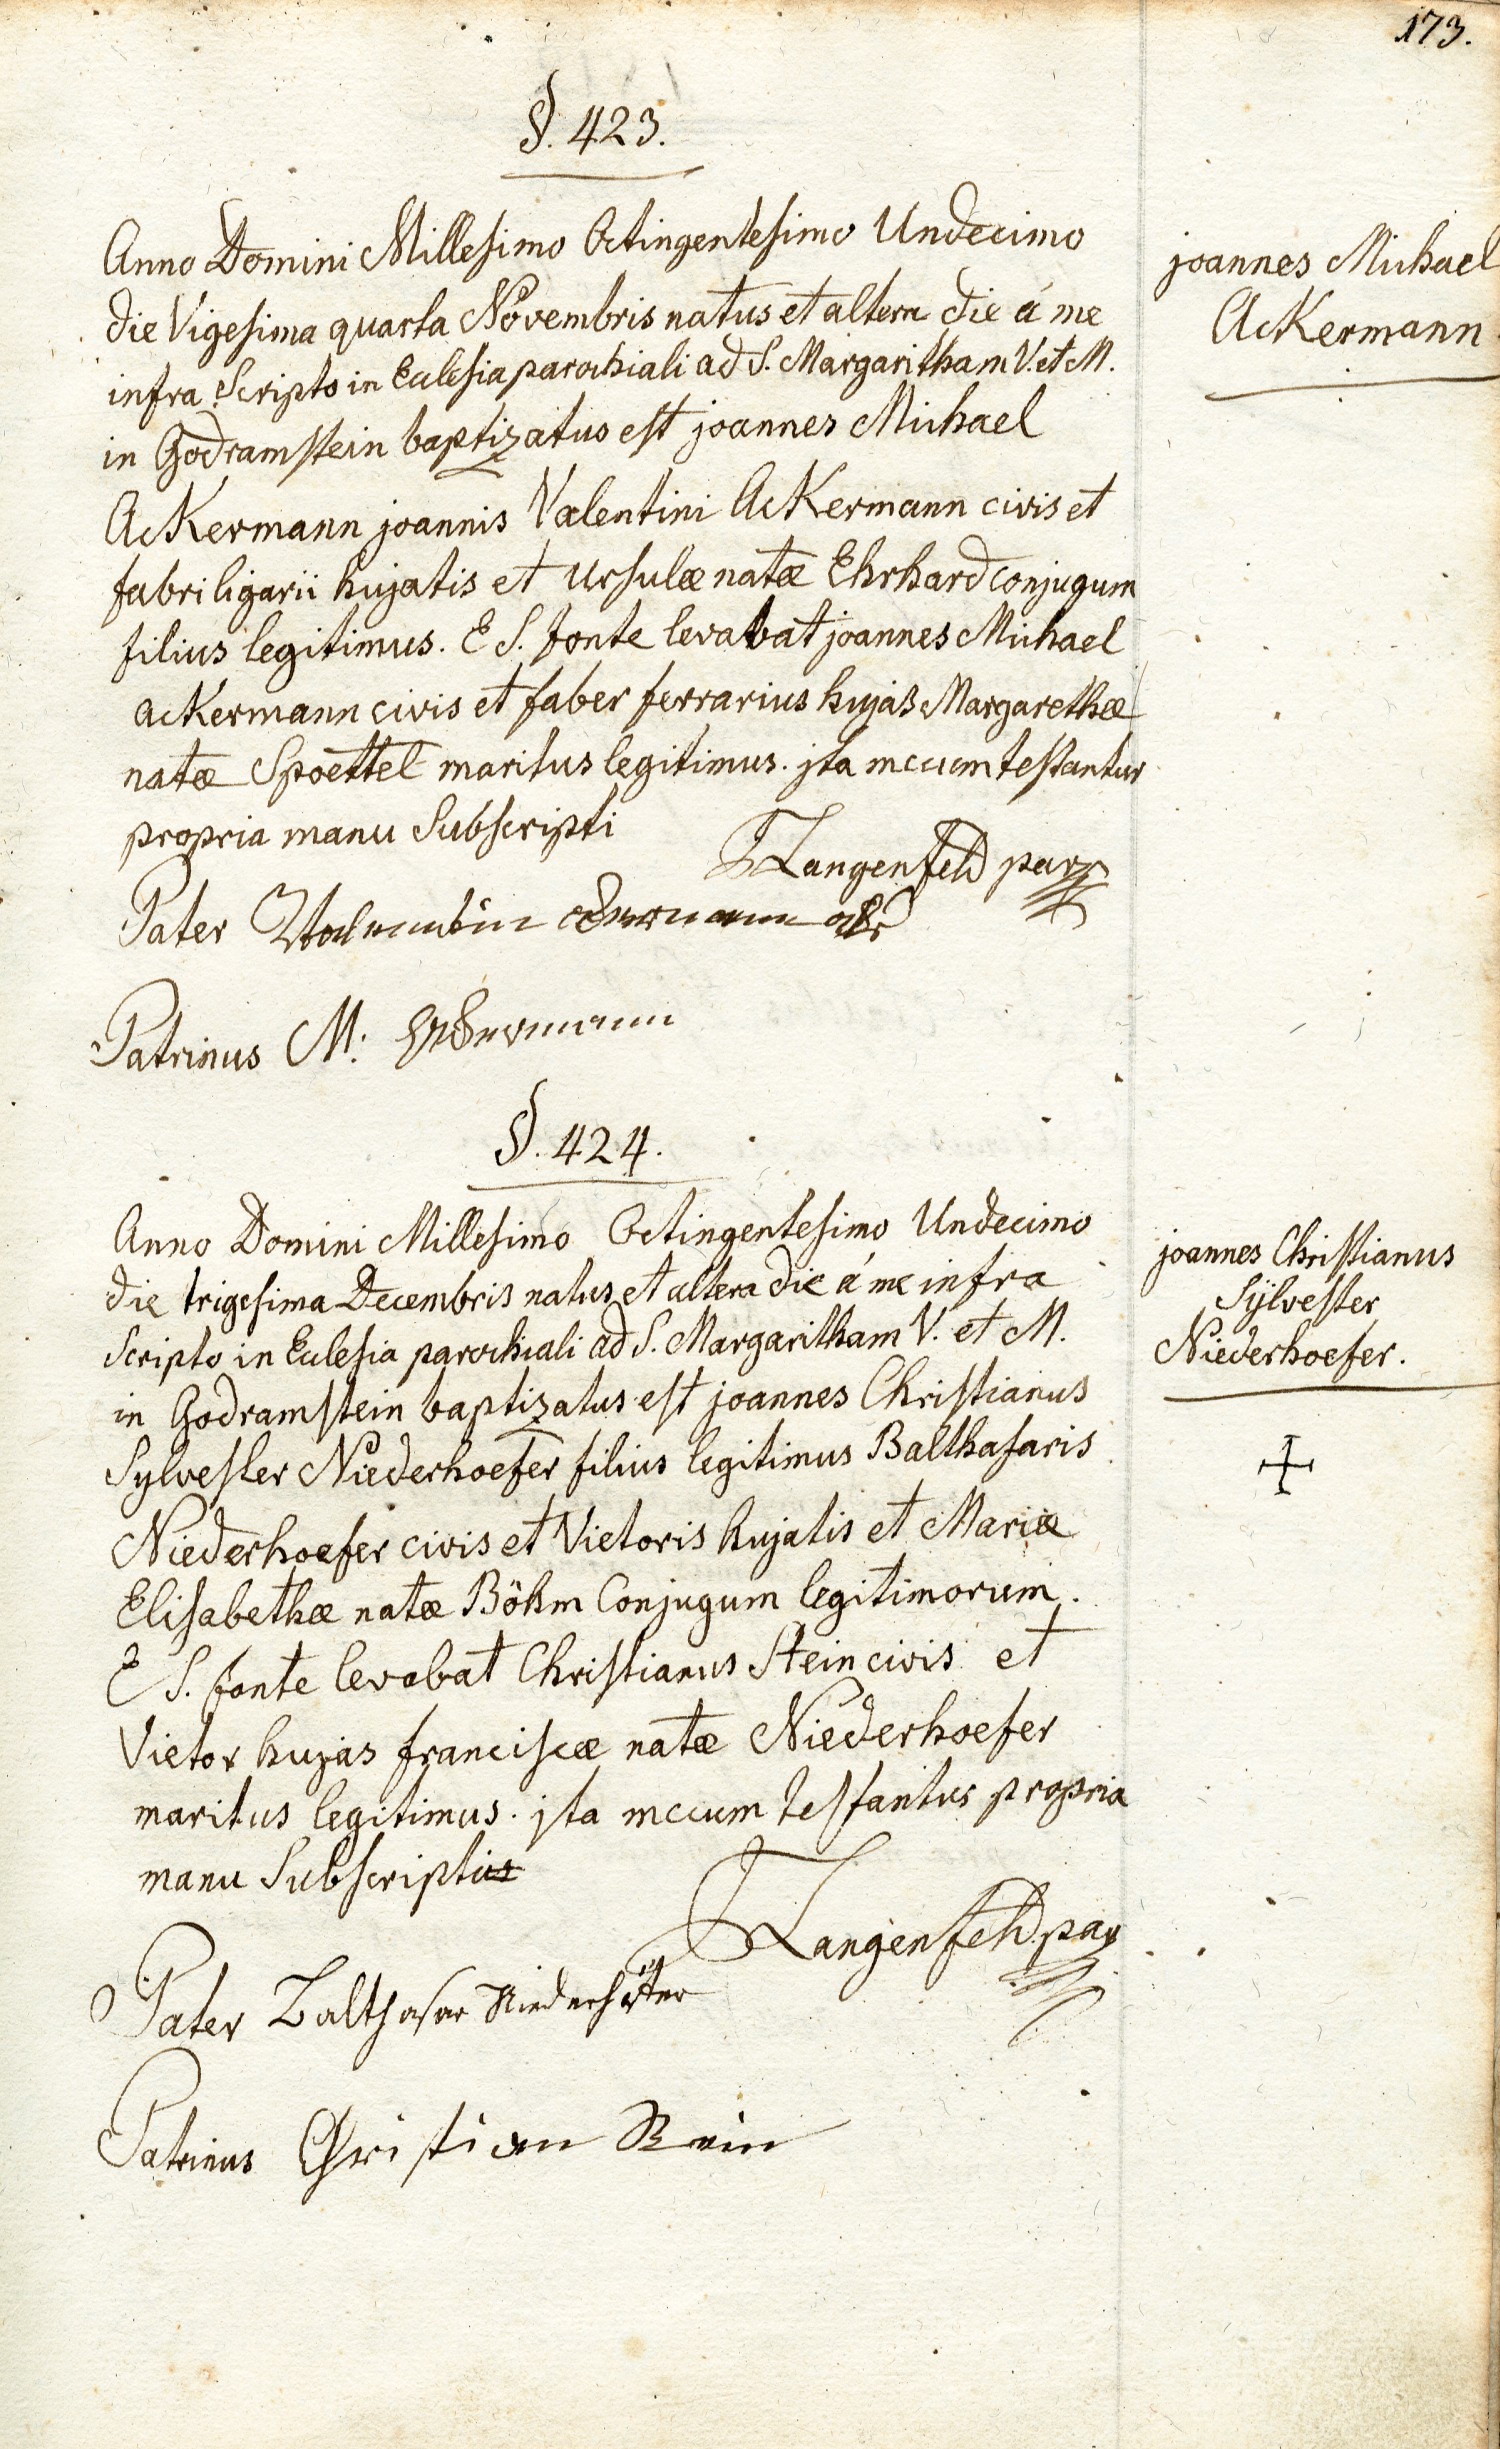 173.
§. 423.
Anno Domini Millesimo Octingentesimo Undecimo
die Vigesima quarta Novembris natus et altera die á me
infra Scripto in Eclesia parochiali ad S. Margaritham V. et M.
in Godramstein baptizatus est joannes Michael
AcKermann joannis Valentini AcKermann civis et
fabri ligarii hujatis et Ursulæ natæ Ehrhard conjugum
filius legitimus. E S. fonte levabat joannes Michael
acKermann civis et faber ferrarius hujas Margarethæ
natæ Spoettel maritus legitimus. jta mecum testantur
propria manu Subscripti
Langenfeld par
Pater Valendin
Patrinus M: Ackermann
joannes Michael
AcKermann
§. 424.
Anno Domini Millesimo Octingentesimo Undecimo
die trigesima Decembris natus et altera die á me infra
Scripto in Eclesia parochiali ad S. Margaritham V. et M.
in Godramstein baptizatus est joannes Christianus
Sylvester Niederhoefer filius legitimus Balthasaris
Niederhoefer civis et Vietoris hujatis et Mariæ
Elisabethæ natæ Böhm Conjugum legitimorum.
E S. fonte levabat Christianus Stein civis et
Vietor hujas franciscæ natæ Niederhoefer
maritus legitimus. jta mecum testantur propria
manu Subscripti
Langenfeld par
Pater Balthasar Niederhöfer
Patrinus Christian Stein
joannes Christianus
Sÿlvester
Niederhoefer.